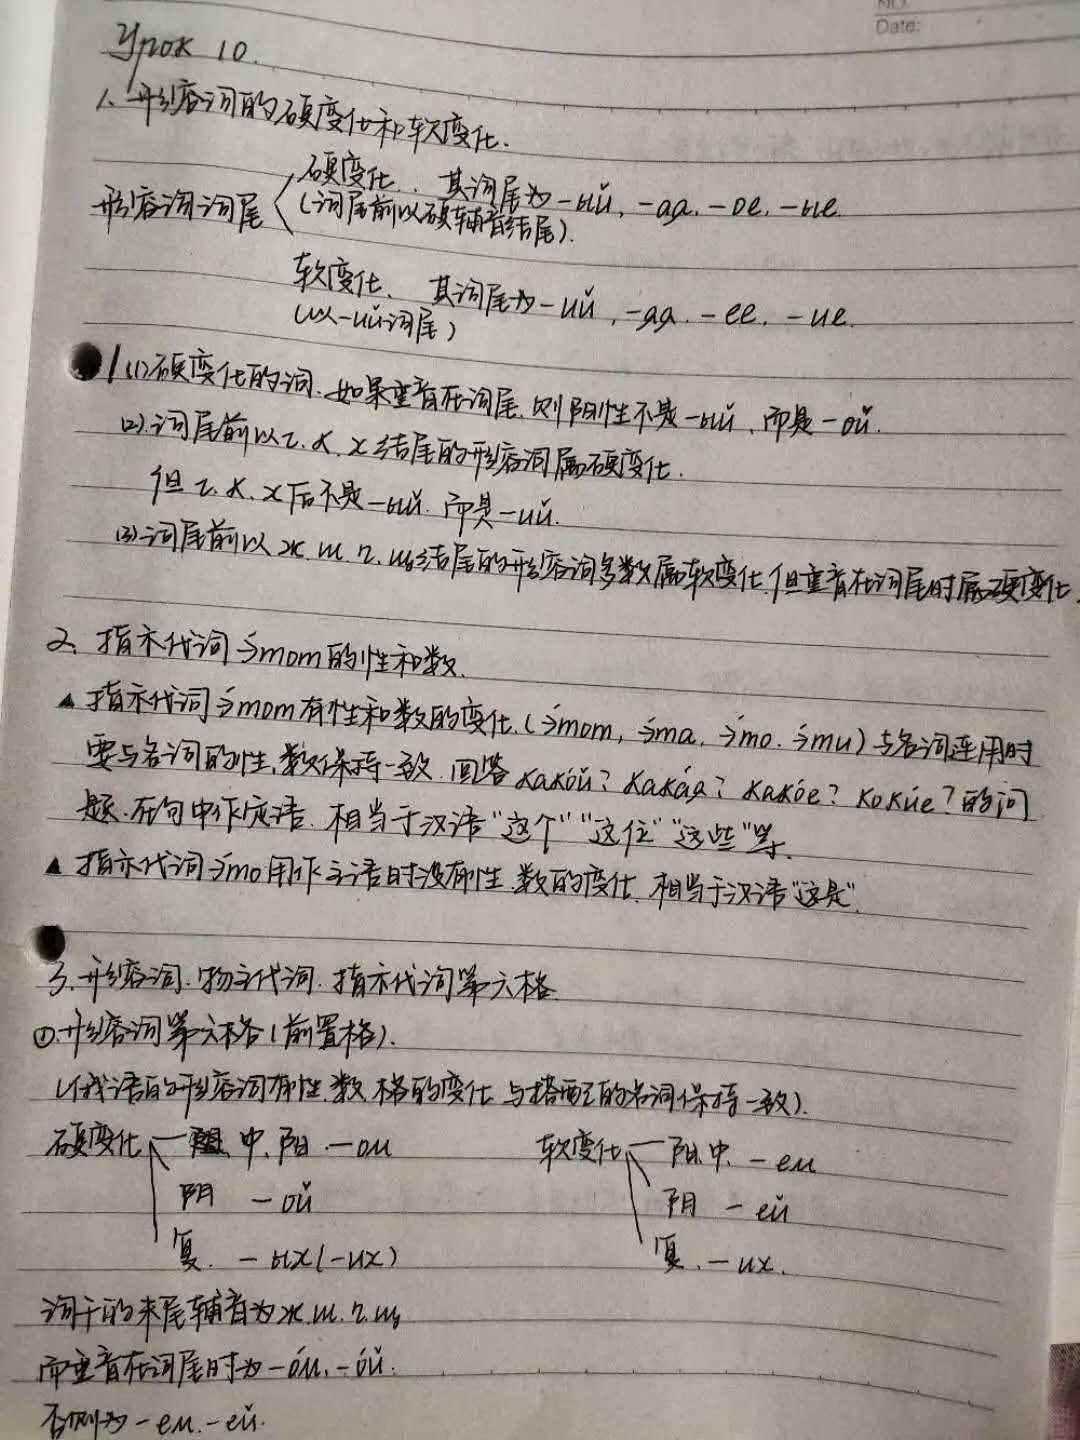 NO.
Date:
Урок 10.
1. 形容词的硬变化和软变化.
形容词词尾 硬变化. 其词尾为-ый, -ая. -ое. -ые.
(词尾前以硬辅音结尾).
软变化、 其词尾为-ий, -яя. -ее. -ие.
(以-ий词尾)
(1)硬变化的词. 如果重音在词尾. 则阳性不是-ый. 而是-ой.
(2).词尾前以г. к. х结尾的形容词属硬变化.
但г. к. х后不是-ый. 而是-ий.
(3)词尾前以ж. ш. ч. щ结尾的形容词多数属软变化. 但重音在词尾时属硬变化.
2. 指示代词э́тот的性和数.
▲ 指示代词э́тот有性和数的变化. (э́тот, э́та. э́то. э́ти) 与名词连用时
要与名词的性、数保持一致. 回答како́й? кака́я? како́е? каки́е? 的问
题. 在句中作定语. 相当于汉语"这个""这位""这些"等.
▲ 指示代词э́то用作主语时没有性、数的变化. 相当于汉语"这是".
3. 形容词. 物主代词. 指示代词第六格
①.形容词第六格(前置格).
(俄语的形容词有性. 数. 格的变化 与搭配的名词保持一致).
硬变化 中. 阳. -ом 软变化 阳. 中. -ем
阴 -ой 阴 -ей
复. -ых(-их) 复. -их.
词干的末尾辅音为ж. ш. ч. щ
而重音在词尾时为-о́м. -о́й.
否则为-ем. -ей.